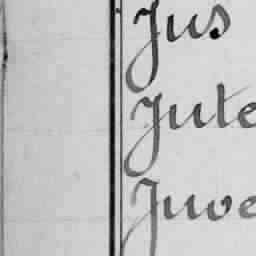 Jus
Jute
Juve